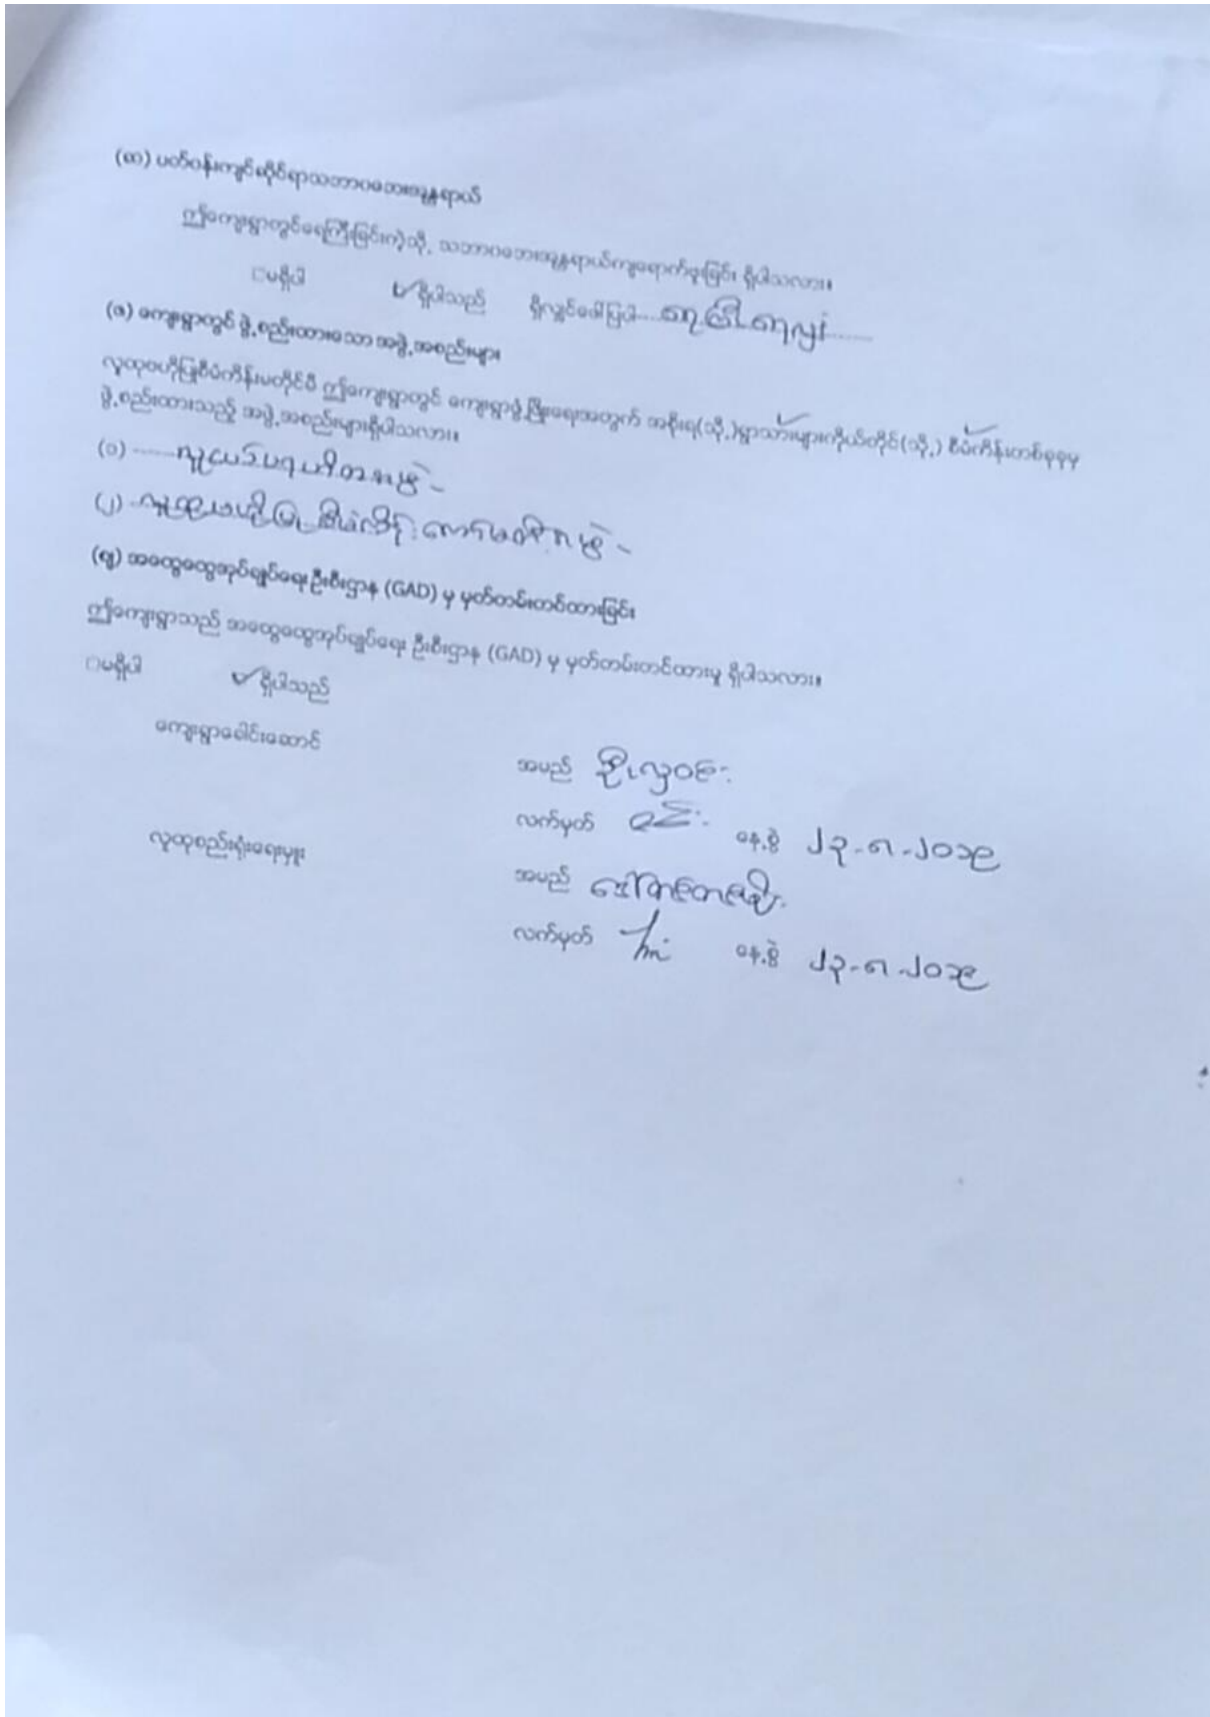 (ဆ) ပတ်ဝန်းကျင်ဆိုင်ရာသဘာဝဘေးအန္တရာယ်
ဤကျေးရွာတွင်ရေကြီးခြင်းကဲ့သို့ သဘာဝဘေးအန္တရာယ်ကျရောက်ဖူးခြင်း ရှိပါသလား။
မရှိပါ ရှိပါသည် ရှိလျှင်ဖေါ်ပြပါ.....
(ဇ) ကျေးရွာတွင် ဖွဲ့စည်းထားသော အဖွဲ့အစည်းများ
လူထုဗဟိုပြုစီမံကိန်းမတိုင်မီ ဤကျေးရွာတွင် ကျေးရွာဖွံ့ဖြိုးရေးအတွက် အစိုးရ(သို့)ရွာသားများကိုယ်တိုင်(သို့) စီမံကိန်းတစ်ခုခုမှ
ဖွဲ့စည်းထားသည့် အဖွဲ့အစည်းများရှိပါသလား။
(၁) ...... လူငယ်ပရဟိတအဖွဲ့
(၂) လူထုဗဟိုပြုစီမံကိန်းကော်မတီအဖွဲ့
(ဈ) အထွေထွေအုပ်ချုပ်ရေးဦးစီးဌာန (GAD) မှ မှတ်တမ်းတင်ထားခြင်း
ဤကျေးရွာသည် အထွေထွေအုပ်ချုပ်ရေး ဦးစီးဌာန (GAD) မှ မှတ်တမ်းတင်ထားမှု ရှိပါသလား။
မရှိပါ ရှိပါသည်
ကျေးရွာခေါင်းဆောင်
အမည် ဦးလှဝင်း
လက်မှတ် ဝင်း နေ့စွဲ ၂၃-၈-၂၀၁၉
လူထုစည်းရုံးရေးမှူး
အမည်
လက်မှတ် နေ့စွဲ ၂၃-၈-၂၀၁၉